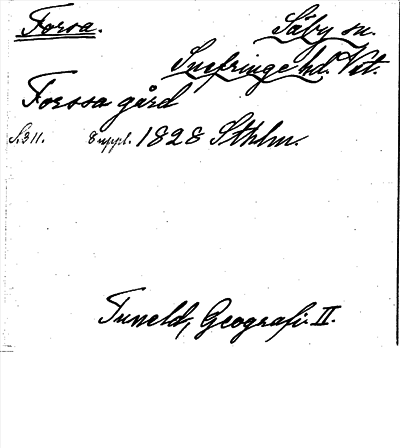 Forsa. Säby sn.
Snefringe hd. Vst.
Forssa gård
S. 311. 8 uppl. 1828 Sthlm.
Tuneld, Geografi. II.